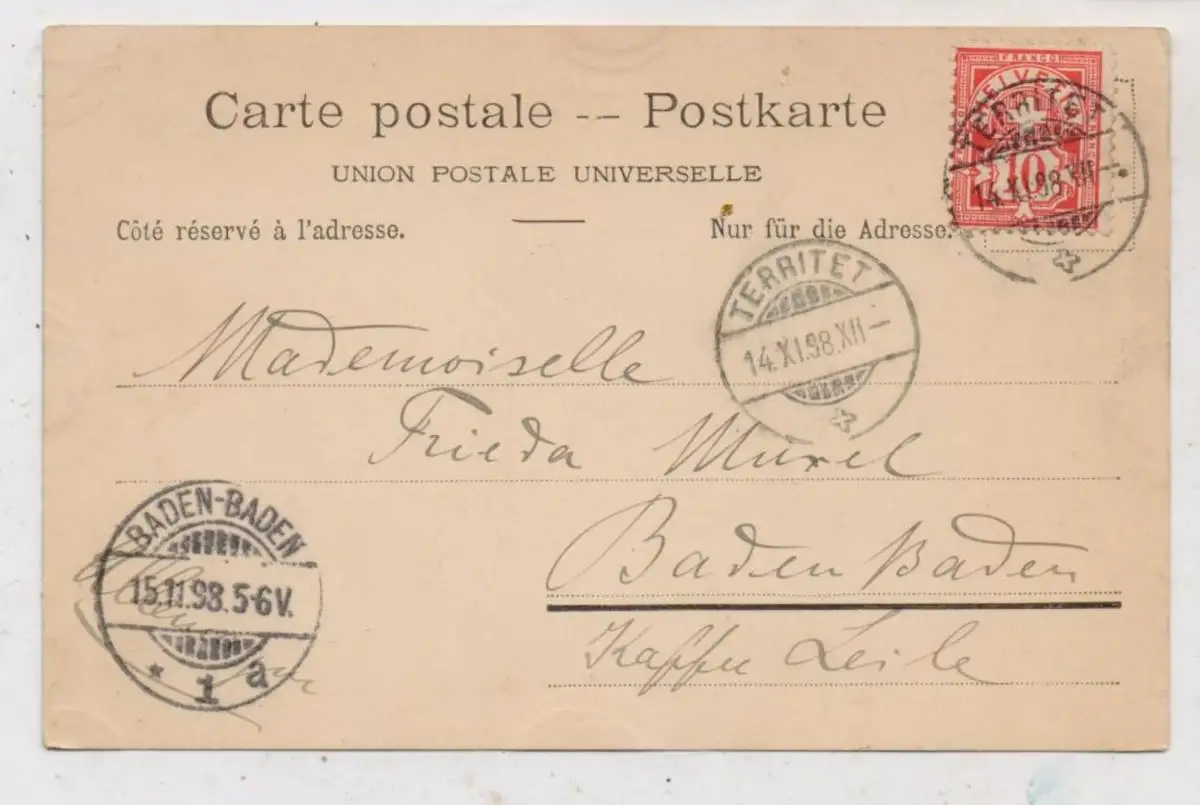 Carte postale -- Postkarte
UNION POSTALE UNIVERSELLE
Côté réservé à l'adresse.
Nur für die Adresse.
FRANCO
HELVETIA
10
TERRITET
14.XI.98.XII
TERRITET
14.XI.98.XII—
Mademoiselle
Frieda
Baden Baden
BADEN-BADEN
15.11.98.5-6V.
* 1 a